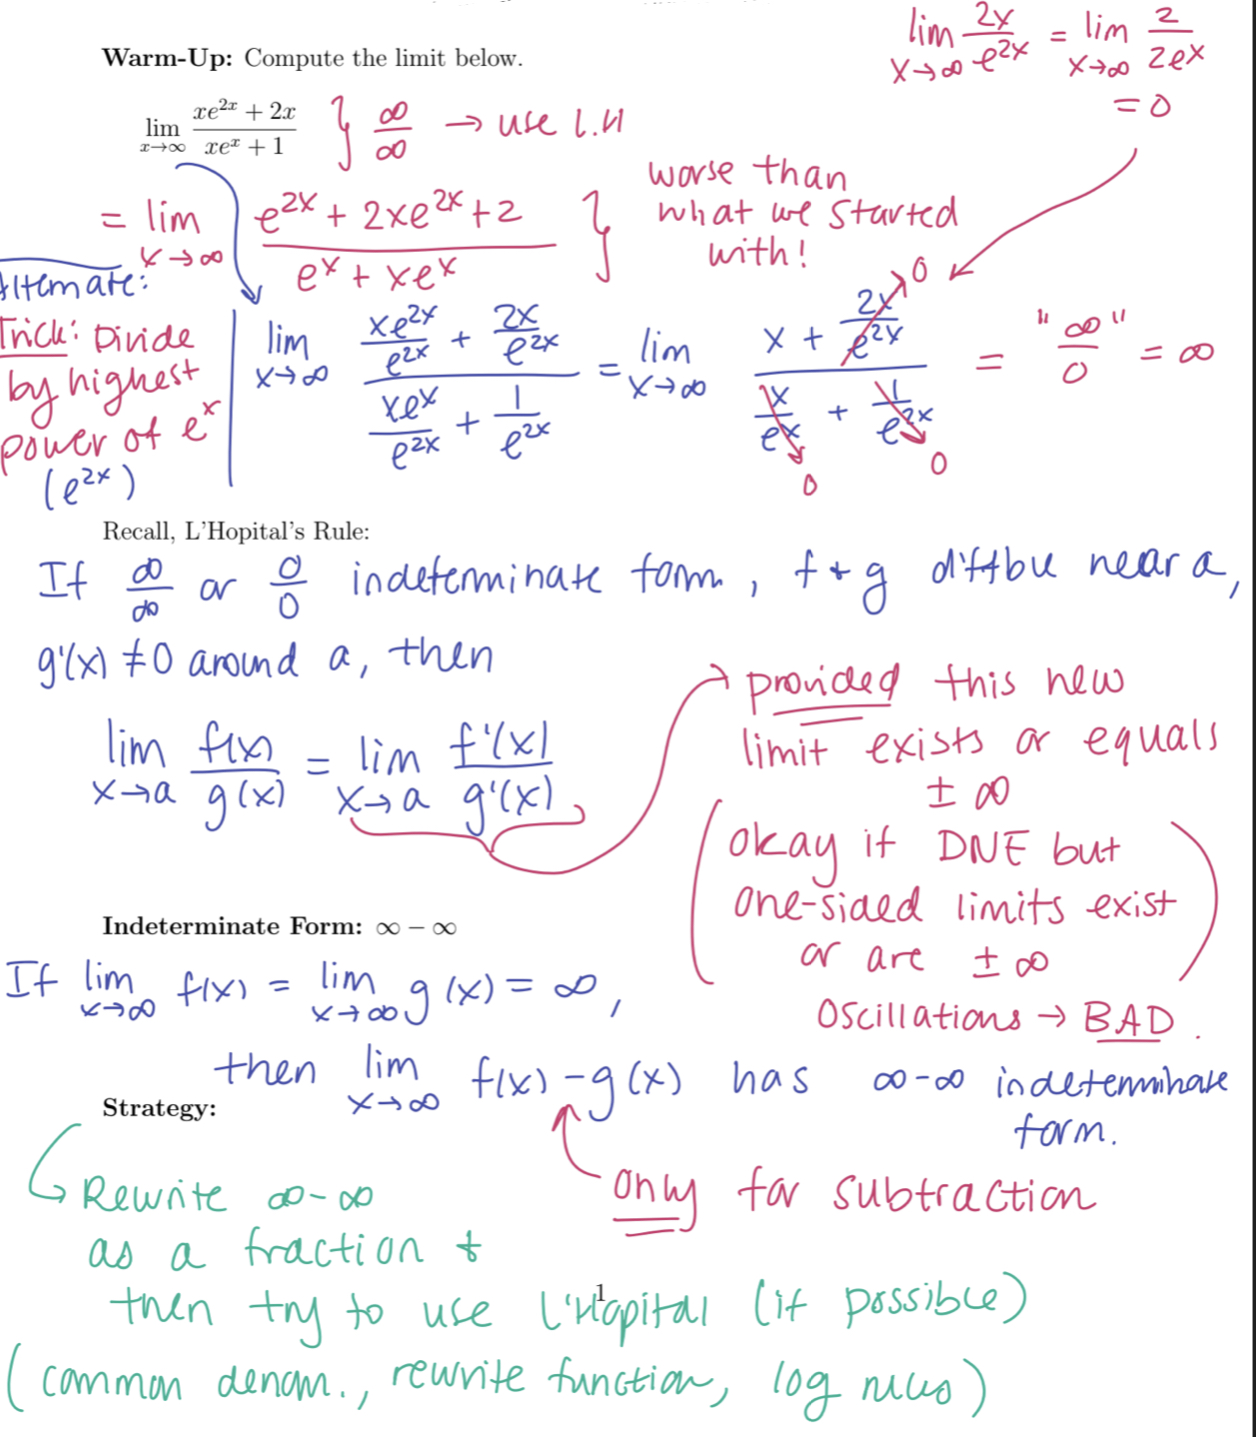 lim x→∞ 2x/e^2x = lim x→∞ 2/2e^x
= 0
Warm-Up: Compute the limit below.
lim x→∞ (xe^2x + 2x)/(xe^x + 1) } ∞/∞ → use L.H
= lim x→∞ (e^2x + 2xe^2x + 2)/(e^x + xe^x) }
worse than
what we started
with!
Alternate:
Trick: Divide
by highest
power of e^x
(e^2x)
lim x→∞ (xe^2x/e^2x + 2x/e^2x)/(xe^x/e^2x + 1/e^2x) = lim x→∞ (x + 2x/e^2x → 0)/(x/e^x → 0 + 1/e^2x → 0) = "∞/0" = ∞
Recall, L'Hopital's Rule:
If ∞/∞ or 0/0 indeterminate form, f + g diffble near a,
g'(x) ≠ 0 around a, then
lim x→a f(x)/g(x) = lim x→a f'(x)/g'(x)
→ provided this new
limit exists or equals
± ∞
(okay if DNE but
one-sided limits exist
or are ± ∞)
Oscillations → BAD.
Indeterminate Form: ∞ − ∞
If lim x→∞ f(x) = lim x→∞ g(x) = ∞,
then lim x→∞ f(x) − g(x) has ∞-∞ indeterminate
form.
only for subtraction
Strategy:
→ Rewrite ∞-∞
as a fraction +
then try to use L'Hopital (if possible)
(common denom., rewrite function, log rules)
1